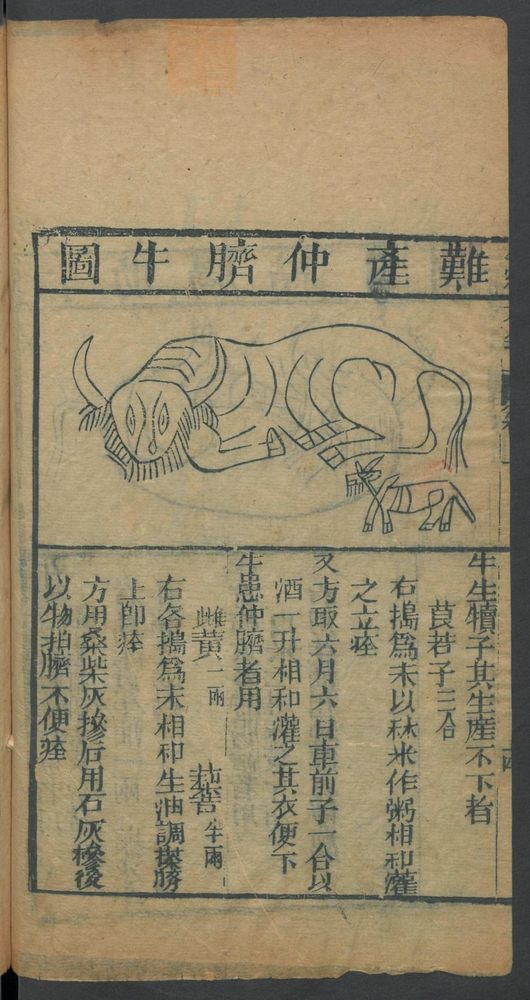 難產仲臍牛圖
牛生犢子其生產不下者
莨若子三合
右搗爲末以秫米作粥相和灌
之立痊
又方取六月六日車前子一合以
酒一升相和灌之其衣便下
牛患仲臍者用
雌黃一兩 半兩
右各搗爲末相和生油調搽臍
上卽痊
方用桑柴灰摻后用石灰摻後
以物拍臍不便痊